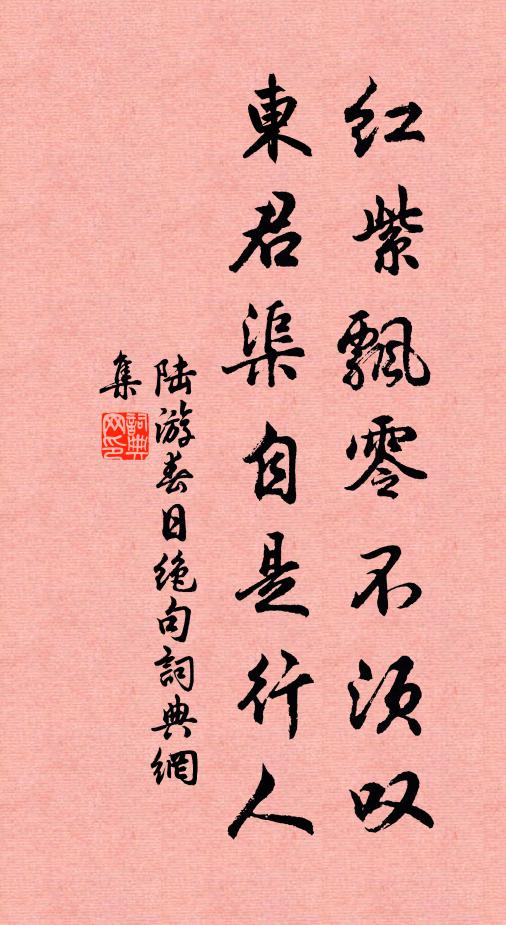 红紫飄零不须叹
東君渠自是行人
陆游春日绝句詞典網
集
詞典
网印